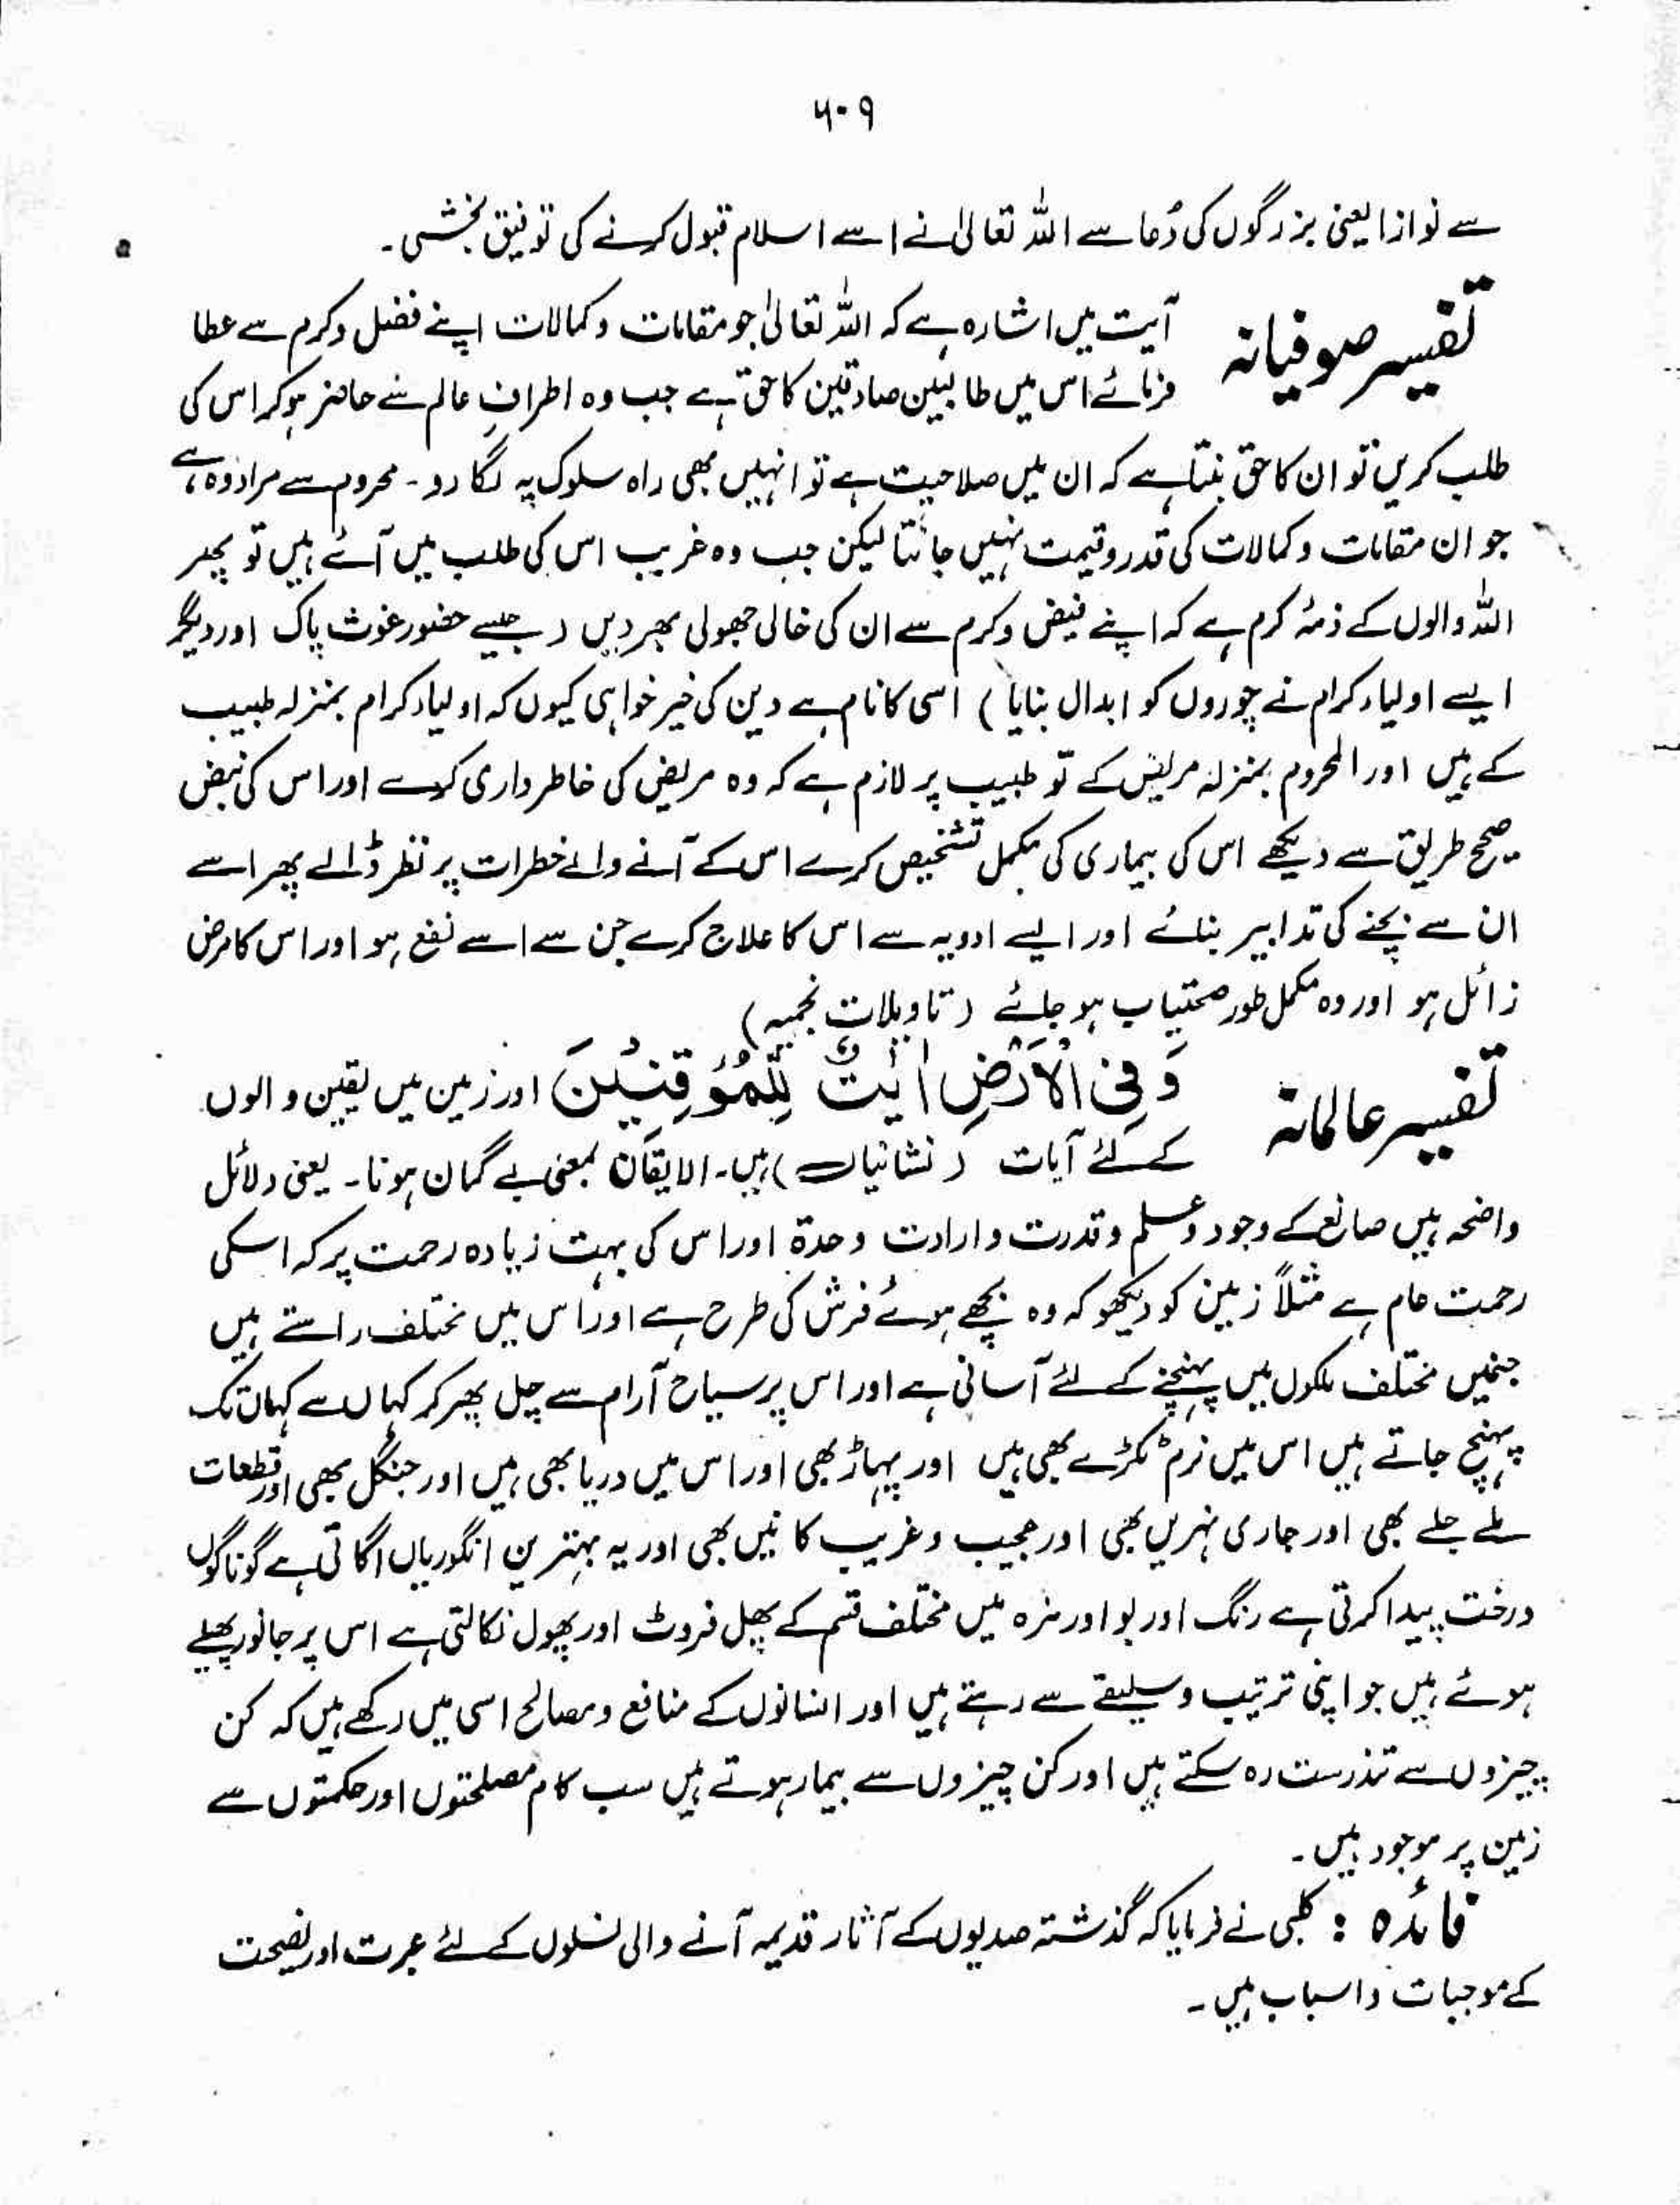 ۶۰۹
سے نوازا یعنی بزرگوں کی دُعا سے اللہ تعالیٰ نے اسے اسلام قبول کرنے کی توفیق بخشی۔
تفسیر صوفیانہ
آیت میں اشارہ ہے کہ اللہ تعالیٰ جو مقامات و کمالات اپنے فضل و کرم سے عطا
فرمائے اس میں طالبین صادقین کا حق ہے جب وہ اطرافِ عالم سے حاضر ہو کر اس کی
طلب کریں تو ان کا حق بنتا ہے کہ ان میں صلاحیت ہے تو انہیں بھی راہ سلوک پہ لگا دو۔ محروم سے مراد وہ ہے
جو ان مقامات و کمالات کی قدر و قیمت نہیں جانتا لیکن جب وہ غریب اس کی طلب میں آئے ہیں تو پھر
اللہ والوں کے ذمۂ کرم ہے کہ اپنے فیض و کرم سے ان کی خالی جھولی بھر دیں (جیسے حضور غوث پاک اور دیگر
ایسے اولیاء کرام نے چوروں کو ابدال بنایا) اسی کا نام ہے دین کی خیر خواہی کیوں کہ اولیاء کرام بمنزلہ طبیب
کے ہیں اور المحروم بمنزلہ مریض کے تو طبیب پر لازم ہے کہ وہ مریض کی خاطر داری کرے اور اس کی نبض
صحیح طریق سے دیکھے اس کی بیماری کی مکمل تشخیص کرے اس کے آنے والے خطرات پر نظر ڈالے پھر اسے
ان سے بچنے کی تدابیر بتائے اور ایسے ادویہ سے اس کا علاج کرے جن سے اسے نفع ہو اور اس کا مرض
زائل ہو اور وہ مکمل طور صحتیاب ہو جائے (تاویلات نجمیہ)
تفسیر عالمانہ
وَفِی الْاَرْضِ اٰیٰتٌ لِّلْمُوْقِنِیْنَ اور زمین میں یقین والوں
کے لئے آیات (نشانیاں) ہیں۔ الایقان بمعنی بے گمان ہونا۔ یعنی دلائل
واضحہ ہیں صانع کے وجود و علم و قدرت و ارادت وحدۃ اور اس کی بہت زیادہ رحمت پر کہ اسکی
رحمت عام ہے مثلاً زمین کو دیکھو کہ وہ بچھے ہوئے فرش کی طرح ہے اور اس میں مختلف راستے ہیں
جنمیں مختلف ملکوں میں پہنچنے کے لئے آسانی ہے اور اس پر سیاح آرام سے چل پھر کر کہاں سے کہاں تک
پہنچ جاتے ہیں اس میں نرم ٹکڑے بھی ہیں اور پہاڑ بھی اور اس میں دریا بھی ہیں اور جنگل بھی اور قطعات
ملے جلے بھی اور جاری نہریں بھی اور عجیب و غریب کانیں بھی اور یہ بہترین انگوریاں اگاتی ہے گوناگوں
درخت پیدا کرتی ہے رنگ اور بو اور مزہ میں مختلف قسم کے پھل فروٹ اور پھول نکالتی ہے اس پر جانور پھیلے
ہوئے ہیں جو اپنی ترتیب و سلیقے سے رہتے ہیں اور انسانوں کے منافع و مصالح اسی میں رکھے ہیں کہ کن
چیزوں سے تندرست رہ سکتے ہیں اور کن چیزوں سے بیمار ہوتے ہیں سب کام مصلحتوں اور حکمتوں سے
زمین پر موجود ہیں۔
فائدہ : کلبی نے فرمایا کہ گذشتہ صدیوں کے آثار قدیمہ آنے والی نسلوں کے لئے عبرت اور نصیحت
کے موجبات و اسباب ہیں۔